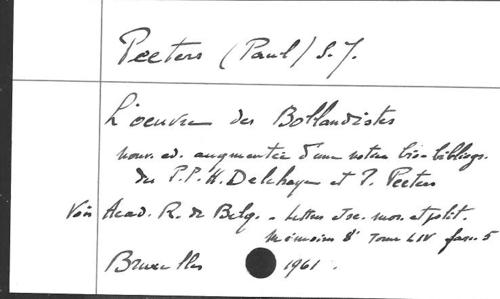 Peeters (Paul) S.J.
L'oeuvre des Bollandistes
nouv. ed. augmentée d'une notice bio-bibliogr.
des P.P. H. Delehaye et P. Peeters
Voir Acad. R. de Belg. - Lettres et sc. mor. et polit.
Mémoires 8° Tome LIV fasc. 5
Bruxelles 1961.